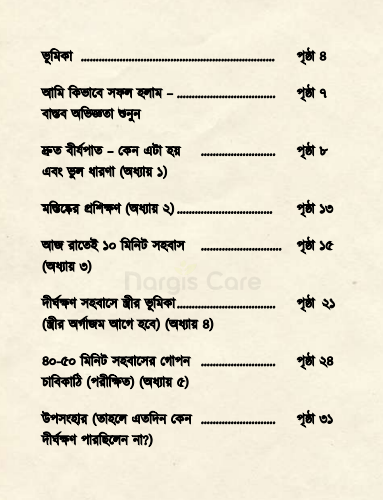 ভূমিকা ........................................................ পৃষ্ঠা ৪
আমি কিভাবে সফল হলাম – ............................. পৃষ্ঠা ৭
বাস্তব অভিজ্ঞতা শুনুন
দ্রুত বীর্যপাত – কেন এটা হয় ...................... পৃষ্ঠা ৮
এবং ভুল ধারণা (অধ্যায় ১)
মস্তিষ্কের প্রশিক্ষণ (অধ্যায় ২) ............................ পৃষ্ঠা ১৩
আজ রাতেই ১০ মিনিট সহবাস ........................ পৃষ্ঠা ১৫
(অধ্যায় ৩)
Nargis Care
দীর্ঘক্ষণ সহবাসে স্ত্রীর ভূমিকা ............................. পৃষ্ঠা ২১
(স্ত্রীর অর্গাজম আগে হবে) (অধ্যায় ৪)
৪০-৫০ মিনিট সহবাসের গোপন ...................... পৃষ্ঠা ২৪
চাবিকাঠি (পরীক্ষিত) (অধ্যায় ৫)
উপসংহার (তাহলে এতদিন কেন ...................... পৃষ্ঠা ৩১
দীর্ঘক্ষণ পারছিলেন না?)